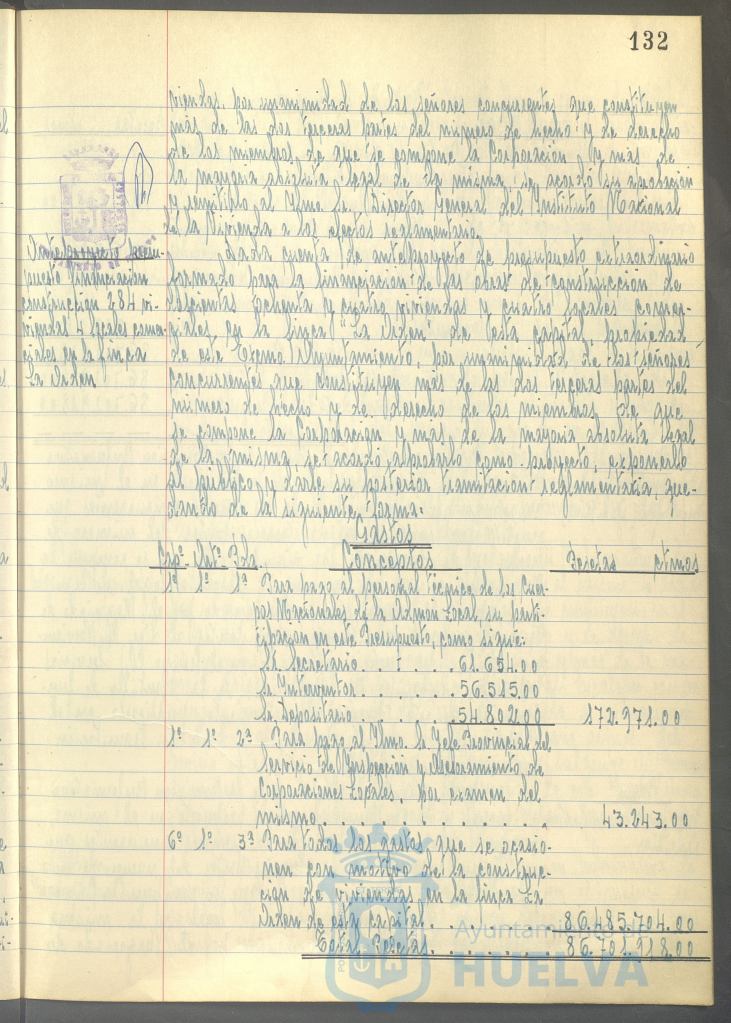 132
viendas, por unanimidad de los señores concurrentes que constituyen
más de las dos terceras partes del número de hecho y de derecho
de los miembros de que se compone la Corporación y más de
la mayoria absoluta legal de la misma, se acordó su aprobación
y remitirlo al Ytmo. Sr. Director General del Instituto Nacional
de la Vivienda a los efectos reglamentarios.
Anteproyecto presu-
puesto financiación
construcción 284 vi-
viendas 4 locales comer-
ciales en la finca
La Orden
Dada cuenta de anteproyecto de presupuesto extraordinario
formado para la financiación de las obras de construcción de
doscientas ochenta y cuatro viviendas y cuatro locales comer-
ciales en la finca "La Orden" de esta capital, propiedad
de este Excmo. Ayuntamiento, por unanimidad de los señores
concurrentes que constituyen más de las dos terceras partes del
número de hecho y de derecho de los miembros de que
se compone la Corporación y más de la mayoria absoluta legal
de la misma, se acordó aprobarlo como proyecto, exponerlo
al público y darle su posterior tramitación reglamentaria, que-
dando de la siguiente forma:
Gastos
Capº Artº Pda. Conceptos Pesetas ctmos
1º 1º 1ª Para pago al personal técnico de los Cuer-
pos Nacionales de la Admón Local su parti-
cipación en este Presupuesto, como sigue:
Sr. Secretario . . . . . 61.654.00
Sr. Interventor . . . . . 56.515.00
Sr. Depositario . . . . . 54.802.00 172.971.00
1º 1º 2ª Para pago al Ylmo. Sr. Jefe Provincial del
Servicio de Ynspección y Asesoramiento de
Corporaciones Locales, por examen del
mismo . . . . . . . . . . . 43.243.00
6º 1º 3ª Para todos los gastos que se ocasio-
nen con motivo de la construc-
ción de viviendas en la finca La
Orden de esta capital . . . . . . 86.485.704.00
Total Pesetas . . . . . . . . 86.701.918.00
Ayuntamiento de
HUELVA